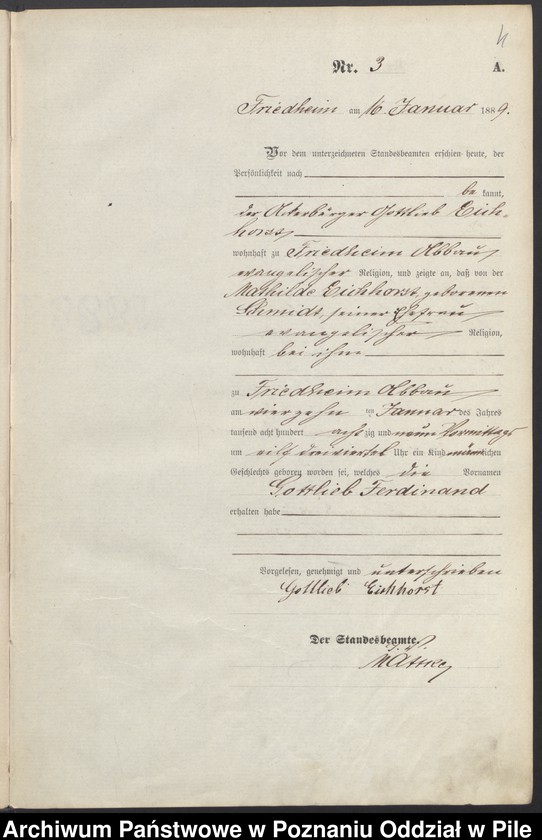 4
Nr. 3 A.
Friedheim am 16. Januar 1889.
Vor dem unterzeichneten Standesbeamten erschien heute, der
Persönlichkeit nach
be kannt,
der Ackerbürger Gottlieb Eich-
horst
wohnhaft zu Friedheim Abbau
evangelischer Religion, und zeigte an, daß von der
Mathilde Eichhorst, geborenen
Schmidt, seiner Ehefrau
evangelischer Religion,
wohnhaft bei ihm
zu Friedheim Abbau
am vierzehn ten Januar des Jahres
tausend acht hundert acht zig und neun Vormittags
um eilf dreiviertel Uhr ein Kind männlichen
Geschlechts geboren worden sei, welches die Vornamen
Gottlieb Ferdinand
erhalten habe
Vorgelesen, genehmigt und unterschrieben
Gottlieb Eichhorst
Der Standesbeamte.
Archiwum Państwowe w Poznaniu Oddział w Pile